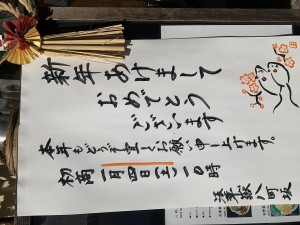 新年あけまして
おめでとう
ございます
本年もどうぞ宜しくお願い申し上げます。
初商 一月四日(土)一〇時